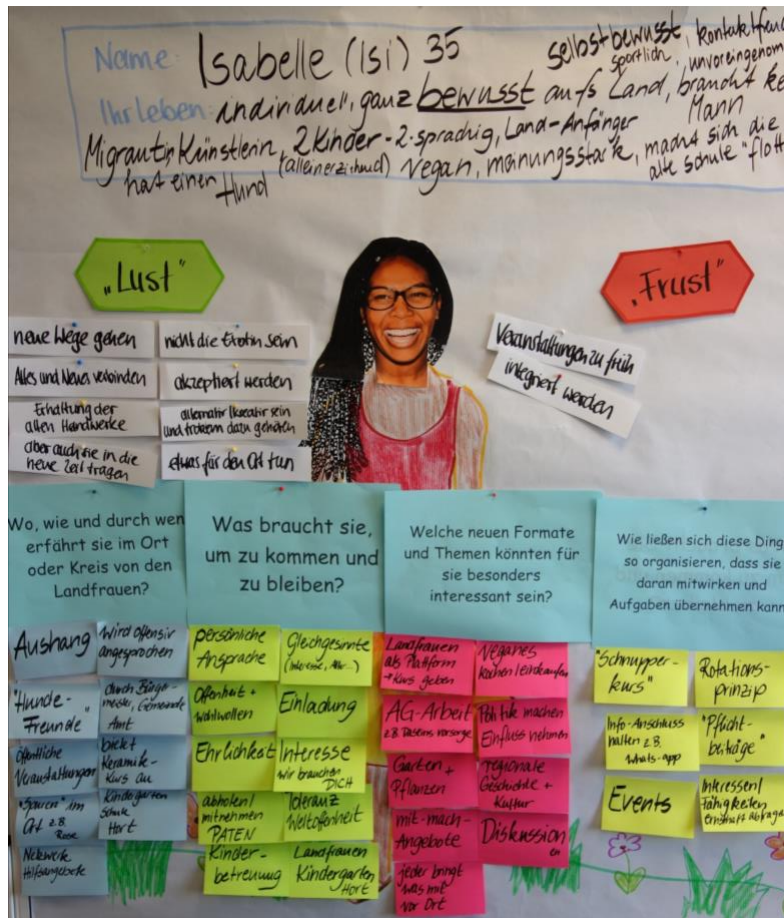 Name: Isabelle (Isi) 35
selbstbewusst, kontaktfreu
sportlich, unvoreingenom
Ihr Leben: individuell, ganz bewusst aufs Land, braucht ke
Mann
Migrantin Künstlerin, 2 Kinder - 2-sprachig, Land-Anfänger
(alleinerziehend) vegan, meinungsstark, macht sich die
hat einen Hund
alte Schule "flott
„Lust"
„Frust"
neue Wege gehen
Altes und Neues verbinden
Erhaltung der
alten Handwerke
aber auch sie in die
neue Zeit tragen
nicht die Exotin sein
akzeptiert werden
alternativ/kreativ sein
und trotzdem dazu gehören
etwas für den Ort tun
Veranstaltungen zu früh
integriert werden
Wo, wie und durch wen
erfährt sie im Ort
oder Kreis von den
Landfrauen?
Was braucht sie,
um zu kommen und
zu bleiben?
Welche neuen Formate
und Themen könnten für
sie besonders
interessant sein?
Wie ließen sich diese Ding
so organisieren, dass sie
daran mitwirken und
Aufgaben übernehmen kann
Aushang
wird offensiv
angesprochen
"Hunde-
Freunde"
durch Bürger-
meister, Gemeinde
Amt
öffentliche
Veranstaltungen
bietet
Keramik-
Kurs an
"Spuren" im
Ort z.B.
Kindergarten
Schule
Hort
Netzwerk
Hilfsangebote
persönliche
Ansprache
Gleichgesinnte
(Interesse, Alter...)
Offenheit +
Wohlwollen
Einladung
Ehrlichkeit
Interesse
wir brauchen
DICH
abholen/
mitnehmen
PATEN
Toleranz
Weltoffenheit
Kinder-
betreuung
Landfrauen
Kindergarten
Hort
Landfrauen
als Plattform
→ Kurs geben
Veganes
kochen/einkaufen
AG-Arbeit
z.B. Daseinsvorsorge
Politik machen
Einfluss nehmen
Garten +
Pflanzen
regionale
Geschichte +
Kultur
mit-mach-
Angebote
Diskussion
en
jeder bringt
was mit
vor Ort
"Schnupper-
kurs"
Rotations-
prinzip
Info-Anschluss
halten z.B.
Whats-app
"Pflicht-
beiträge"
Events
Interessen/
Fähigkeiten
ernsthaft abfragen